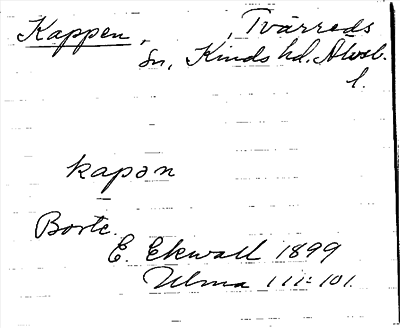 Kappen, Tvärreds
sn, Kinds hd. Älvsb.
l.
kapən
Borte.
E. Ekwall 1899
Ulma 111:101.